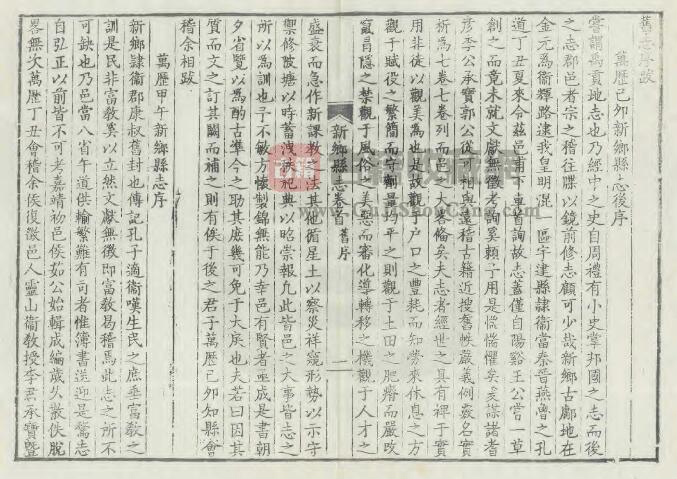 舊志序跋
萬歷己卯新鄉縣志後序
嘗謂禹貢地志也乃經中之史自周禮有小史掌邦國之志而後
之志郡邑者宗之稽往牒以鏡前修志顧可少哉新鄉古鄘地在
金元為衞輝路逮我皇明混一區宇建縣隸衞當秦晉燕魯之孔
道丁丑夏來令茲邑甫下車首詢故志蓋僅自陽谿王公嘗一草
創之而竟未就文獻無徵考詢奚賴予用是慌慌懼矣亟謀諸耆
彥李公承寶郭公從可相與遠稽古籍近搜舊帙嚴義例覈名實
析為七卷七卷列而邑之大畧備矣夫志者經世之具有裨于實
用非徒以觀美為也是故觀于戶口之豐耗而知勞來休息之方
觀于賦役之繁簡而守劑量均平之則觀于土田之肥瘠而嚴
冒隱之禁觀于風俗之美惡而審化導轉移之機觀于人才之
新鄉縣志卷首 舊序
一
盛衰而急作新課教之法其他循星土以察災祥窺形勢以示守
禦修陂塘以時蓄洩秩祀典以昭崇報凡此皆邑之大事皆志之
所以為訓也予不敏方懷製錦無能乃幸邑有賢者亟成是書朝
夕省覽以為酌古準今之助其庶幾可免于大戾也夫若曰因其
質而文之訂其闕而補之則有俟于後之君子萬歷己卯知縣會
稽余相跋
萬歷甲午新鄉縣志序
新鄉隸衞郡康叔舊封也傳記孔子適衞嘆生民之庶垂富教之
訓是民非富教奚以立然文獻無徵即富教曷稽焉此志之所不
可缺也乃邑當八省午道供輸繁難有司者惟簿書送迎是騖志
自弘正以前皆不可考嘉靖初邑侯如公始輯成編歲久散佚脫
畧無次萬歷丁丑會稽余侯復徵邑人靈山衞教授李君承寶暨